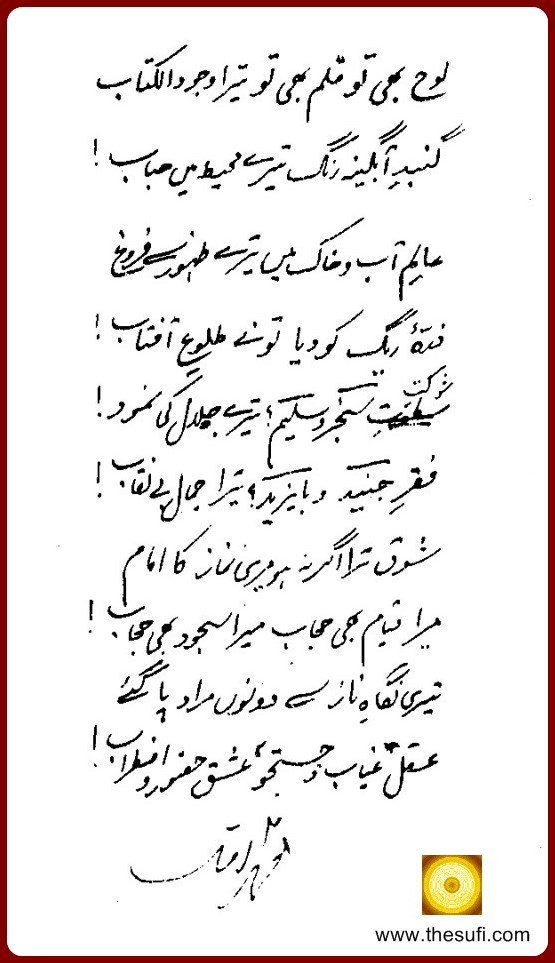 لوح بھی تو قلم بھی تو تیرا وجود الکتاب
گنبدِ آبگینہ رنگ تیرے محیط میں حباب!
عالمِ آب و خاک میں تیرے ظہور سے فروغ
ذرۂ ریگ کو دیا تو نے طلوعِ آفتاب!
شوکتِ سنجر و سلیم؛ تیرے جلال کی نمود!
فقرِ جنید و بایزید؛ تیرا جمال بے نقاب!
شوق ترا اگر نہ ہو میری نماز کا امام
میرا قیام بھی حجاب میرا سجود بھی حجاب!
تیری نگاہِ ناز سے دونوں مراد پا گئے
عقل، غیاب و جستجو، عشق، حضور و اضطراب!
محمد اقبال
www.thesufi.com